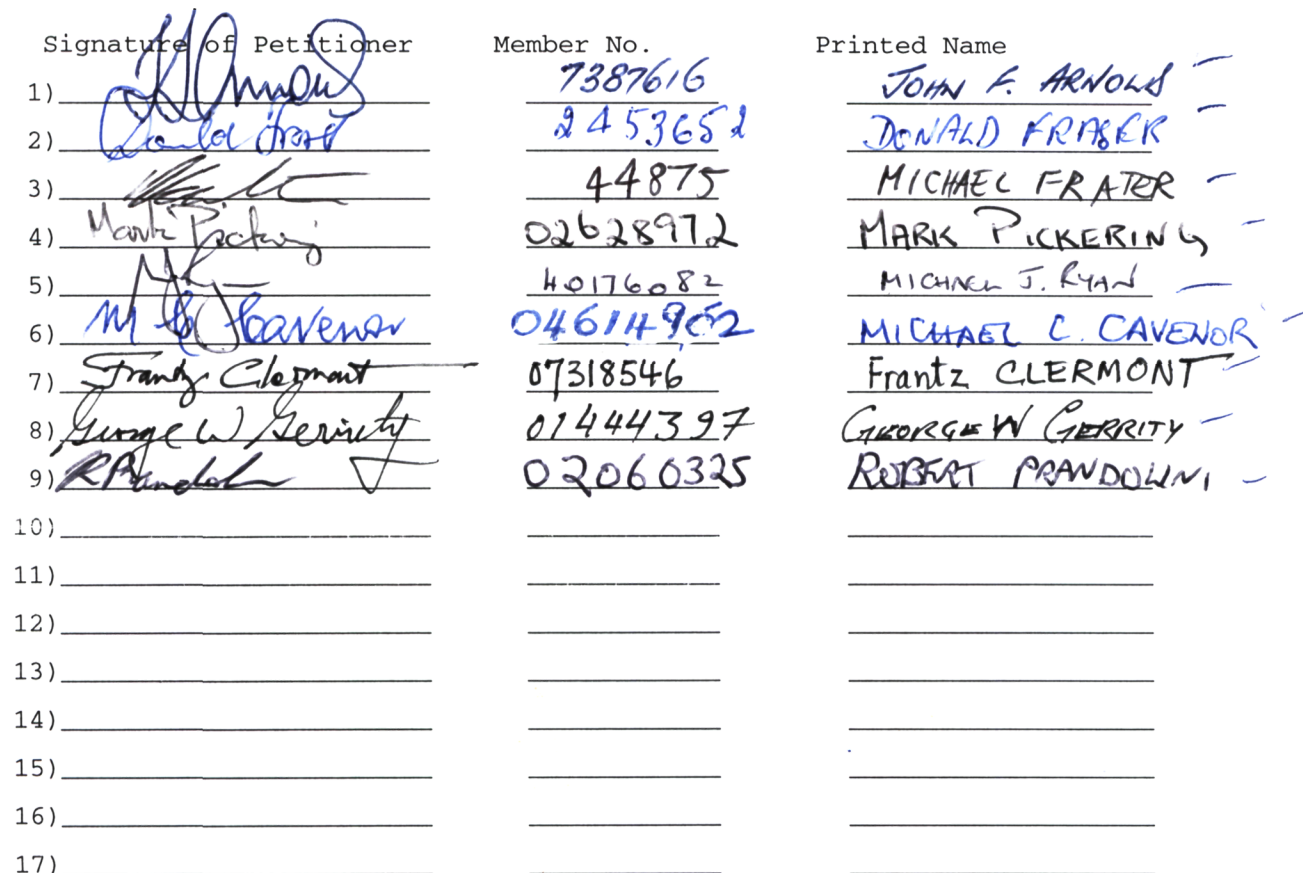 Signature of Petitioner Member No. Printed Name
1) 7387616 JOHN F. ARNOLD
2) Donald Fraser 2453652 DONALD FRASER
3) 44875 MICHAEL FRATER
4) Mark Pickering 02628972 MARK PICKERING
5) 40176082 MICHAEL J. RYAN
6) M C Cavenor 04614902 MICHAEL C. CAVENOR
7) Frantz Clermont 07318546 Frantz CLERMONT
8) George W Gerrity 01444397 GEORGE W GERRITY
9) 02060325 ROBERT PRANDOLINI
10)
11)
12)
13)
14)
15)
16)
17)